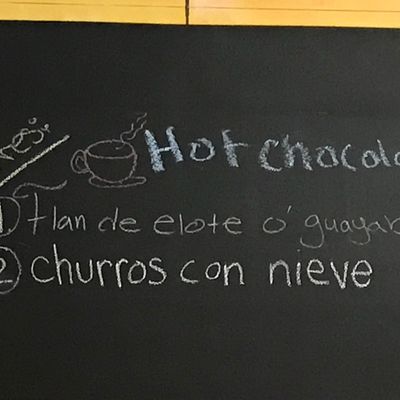 Hot Chocola
1 flan de elote o' guayab
2 churros con nieve